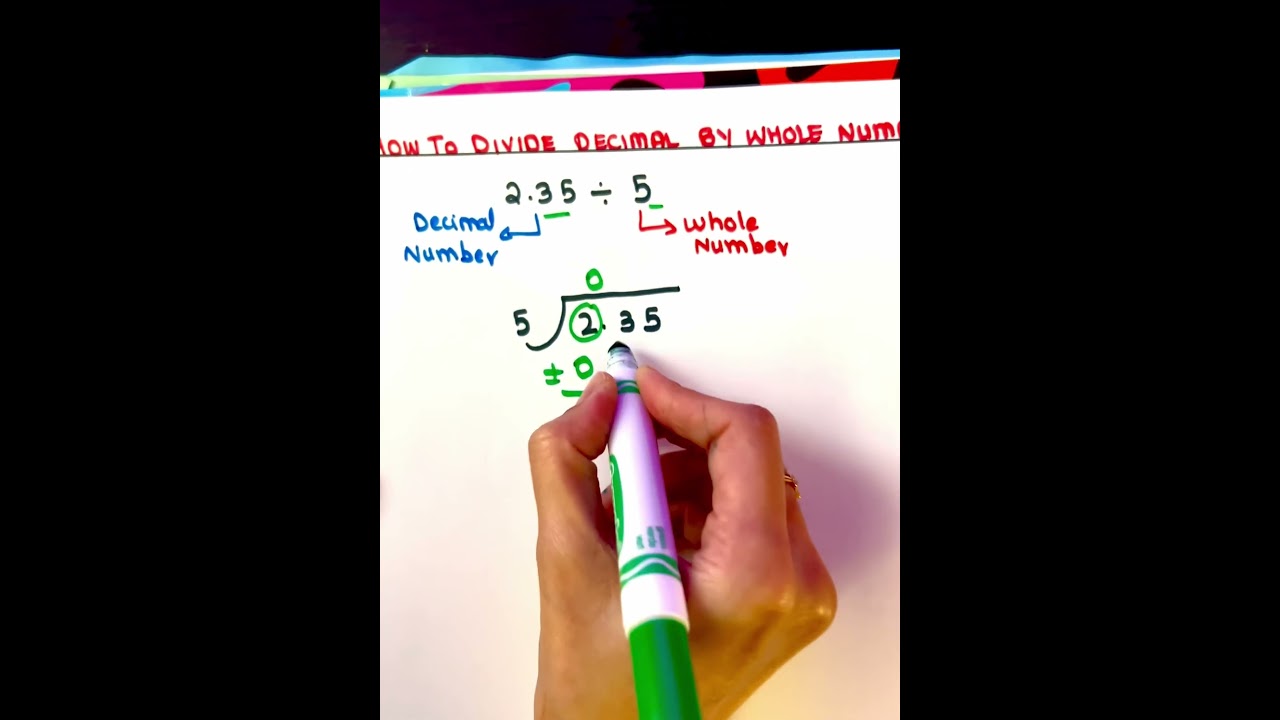 HOW TO DIVIDE DECIMAL BY WHOLE
2.35 ÷ 5
Decimal Number
Whole Number
0
5 2.35
± 0